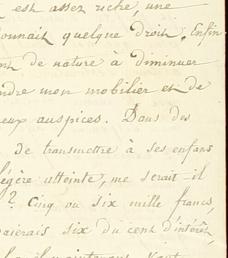 est assez riche, une
onnait quelque droit. Enfin
nt de nature à diminuer
ndre mon mobilier et de
eux auspices. Dans des
de transmettre à ses enfans
égère atteinte, me serait-il
? Cinq ou six mille francs,
aierais six du cent d'intérêt,